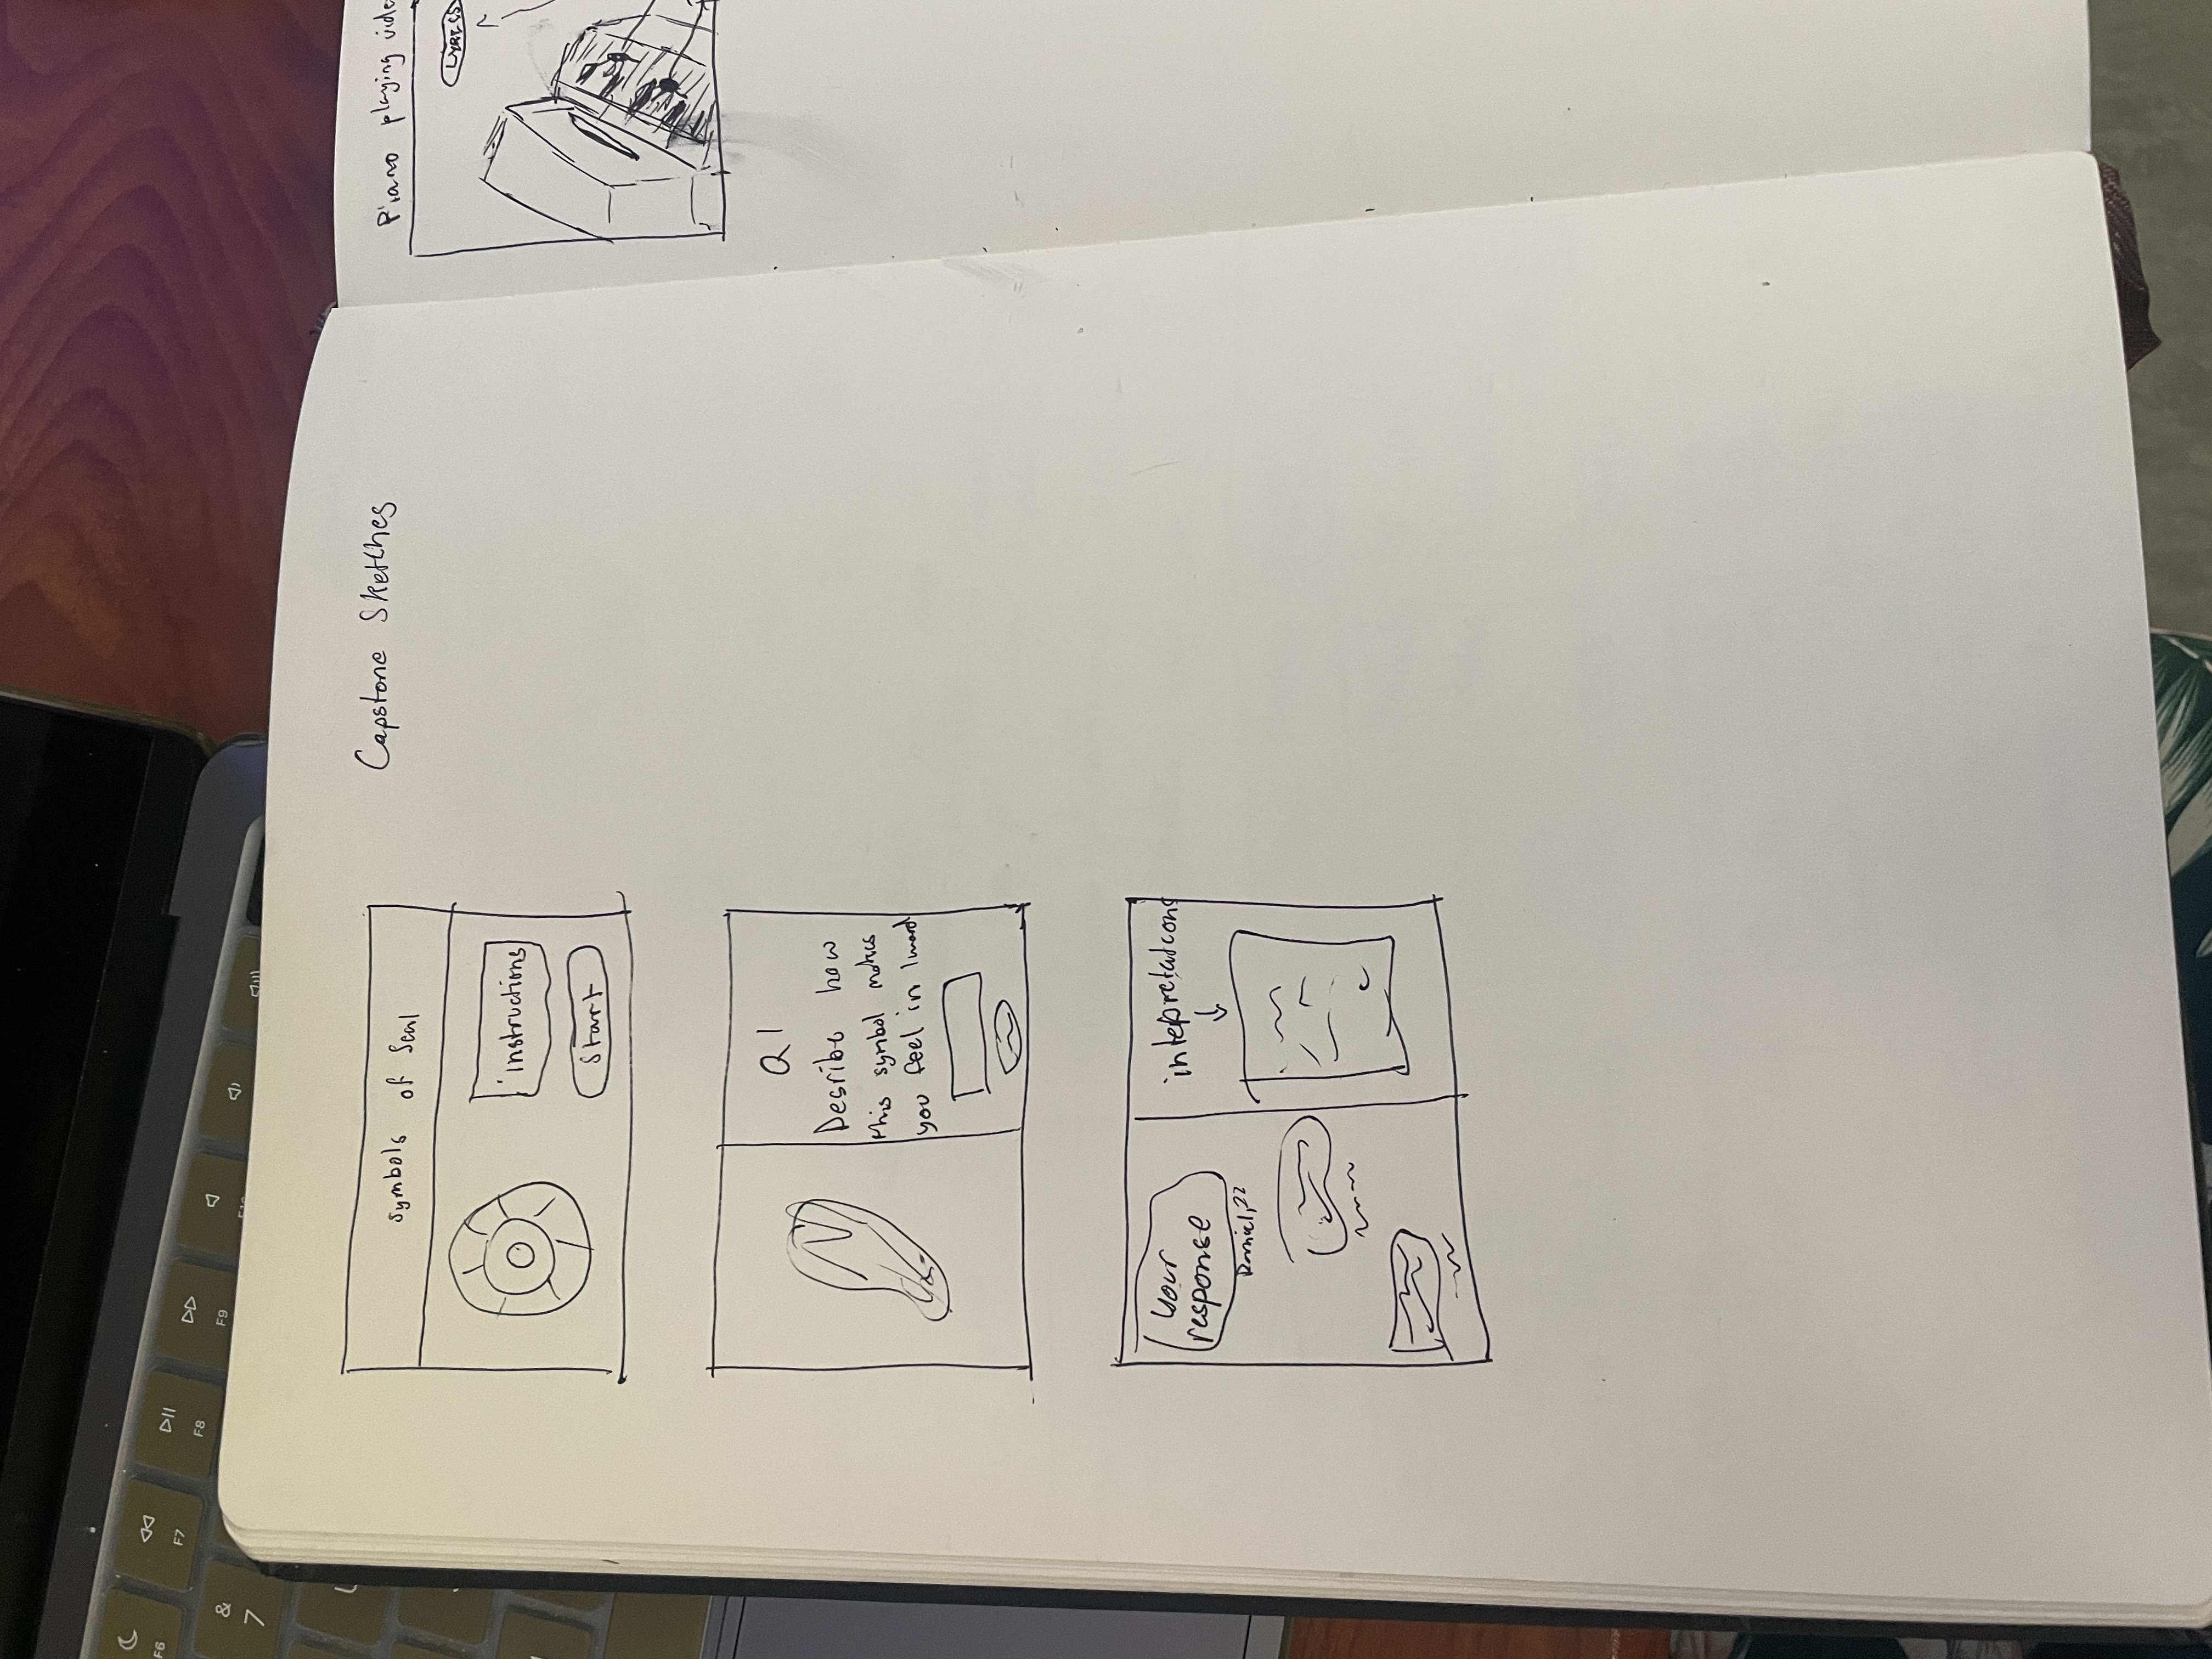 F6
F7
F8
F9
&
7
Capstone Sketches
symbols of Seal
instructions
Start
Q1
Desribe how
this symbol makes
you feel in 1 word
your
response
Daniel, 22
intepretations
Piano playing vide
LYRICS